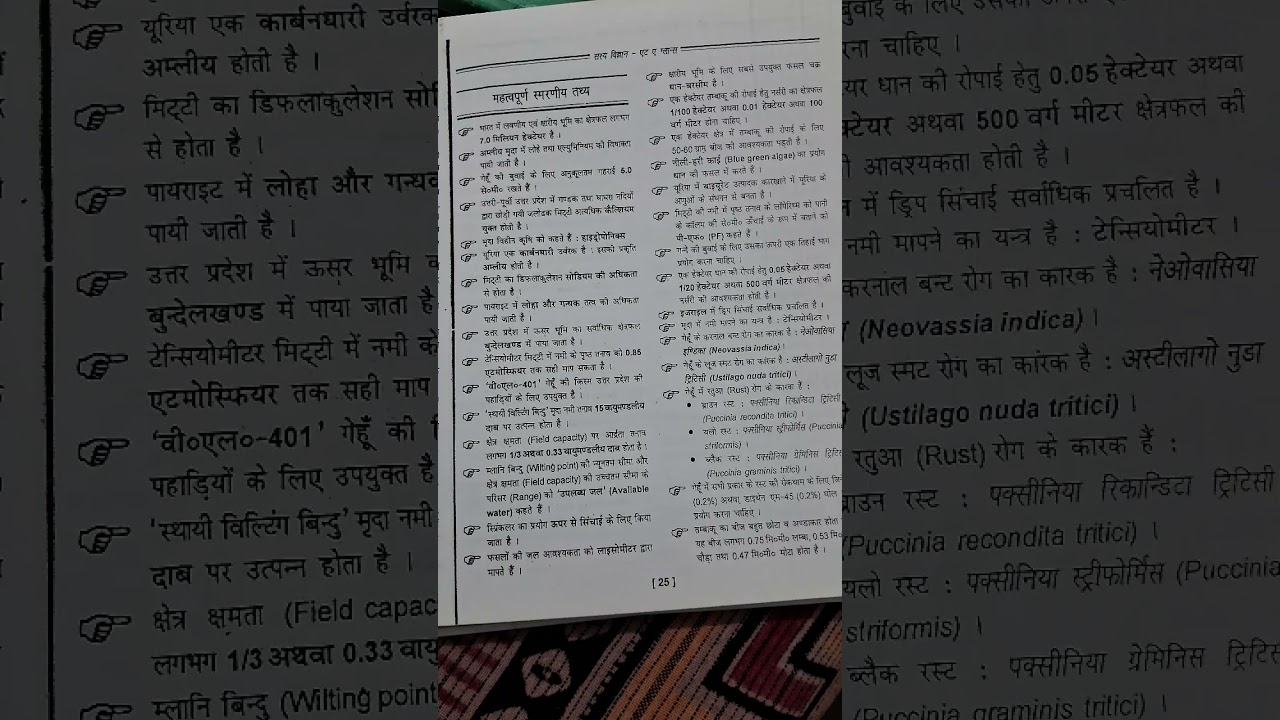 सस्य विज्ञान - एट ए ग्लान्स
महत्वपूर्ण स्मरणीय तथ्य
भारत में लवणीय एवं क्षारीय भूमि का क्षेत्रफल लगभग
7.0 मिलियन हेक्टेयर है ।
अम्लीय मृदा में लोहे तथा एल्युमिनियम की विषाक्तता
पायी जाती है ।
गेहूँ की बुवाई के लिए अनुकूलतम गहराई 5.0
से०मी० रखते हैं ।
उत्तरी-पूर्वी उत्तर प्रदेश में गण्डक तथा घाघरा नदियों
द्वारा छोड़ी गयी जलोढक मिट्टी अत्यधिक कैल्शियम
युक्त होती है ।
मृदा विहीन कृषि को कहते हैं : हाइड्रोपोनिक्स
यूरिया एक कार्बनधारी उर्वरक है : इसकी प्रकृति
अम्लीय होती है ।
मिट्टी का डिफलाकुलेशन सोडियम की अधिकता
से होता है ।
पायराइट में लोहा और गन्धक तत्व की अधिकता
पायी जाती है ।
उत्तर प्रदेश में ऊसर भूमि का सर्वाधिक क्षेत्रफल
बुन्देलखण्ड में पाया जाता है ।
टेन्सियोमीटर मिट्टी में नमी के पृष्ठ तनाव को 0.85
एटमोस्फियर तक सही माप सकता है ।
'वी०एल०-401' गेहूँ की किस्म उत्तर प्रदेश की
पहाड़ियों के लिए उपयुक्त है ।
'स्थायी विल्टिंग बिन्दु' मृदा नमी तनाव 15 वायुमण्डलीय
दाब पर उत्पन्न होता है ।
क्षेत्र क्षमता (Field capacity) पर आर्द्रता तनाव
लगभग 1/3 अथवा 0.33 वायुमण्डलीय दाब होता है ।
म्लानि बिन्दु (Wilting point) की न्यूनतम सीमा और
क्षेत्र क्षमता (Field capacity) की उच्चतम सीमा के
परिसर (Range) को 'उपलब्ध जल' (Available
water) कहते हैं ।
स्प्रिंकलर का प्रयोग ऊपर से सिंचाई के लिए किया
जाता है ।
फसलों की जल आवश्यकता को लाइसोमीटर द्वारा
मापते हैं ।
क्षारीय भूमि के लिए सबसे उपयुक्त फसल चक्र
धान-बरसीम है ।
एक हेक्टेयर तम्बाकू की रोपाई हेतु नर्सरी का क्षेत्रफल
1/100 हेक्टेयर अथवा 0.01 हेक्टेयर अथवा 100
वर्ग मीटर होना चाहिए ।
एक हेक्टेयर क्षेत्र में तम्बाकू की रोपाई के लिए
50-60 ग्राम बीज की आवश्यकता पड़ती है ।
नीली-हरी काई (Blue green algae) का प्रयोग
धान की फसल में करते हैं ।
यूरिया में बाइयूरेट उत्पादक कारखाने में यूरिया के
अणुओं के संघनन से बनता है ।
मिट्टी की नमी में पृष्ठ तनाव के लॉगरिथ्म को पानी
के कॉलम की से०मी० ऊँचाई के रूप में बताने को
पी-एफ० (PF) कहते हैं ।
गन्ने की बुवाई के लिए उसका ऊपरी एक तिहाई भाग
प्रयोग करना चाहिए ।
एक हेक्टेयर धान की रोपाई हेतु 0.05 हेक्टेयर अथवा
1/20 हेक्टेयर अथवा 500 वर्ग मीटर क्षेत्रफल की
नर्सरी की आवश्यकता होती है ।
इजराइल में ड्रिप सिंचाई सर्वाधिक प्रचलित है ।
मृदा में नमी मापने का यन्त्र है : टेन्सियोमीटर ।
गेहूँ के करनाल बन्ट रोग का कारक है : नेओवासिया
इण्डिका (Neovassia indica) ।
गेहूँ के लूज स्मट रोग का कारक है : अस्टीलागो नुडा
ट्रिटिसी (Ustilago nuda tritici) ।
गेहूँ में रतुआ (Rust) रोग के कारक हैं :
• ब्राउन रस्ट : पक्सीनिया रिकान्डिटा ट्रिटिसी
(Puccinia recondita tritici) ।
• यलो रस्ट : पक्सीनिया स्ट्रीफोर्मिस (Puccinia
striformis) ।
• ब्लैक रस्ट : पक्सीनिया ग्रेमिनिस ट्रिटि
(Puccinia graminis tritici) ।
गेहूँ में सभी प्रकार के रस्ट की रोकथाम के लिए
(0.2%) अथवा डाइथेन एम-45 (0.2%) घोल
प्रयोग करना चाहिए ।
तम्बाकू का बीज बहुत छोटा व अण्डाकार होता
यह बीज लगभग 0.75 मि०मी० लम्बा, 0.53 मि०
चौड़ा तथा 0.47 मि०मी० मोटा होता है ।
[ 25 ]